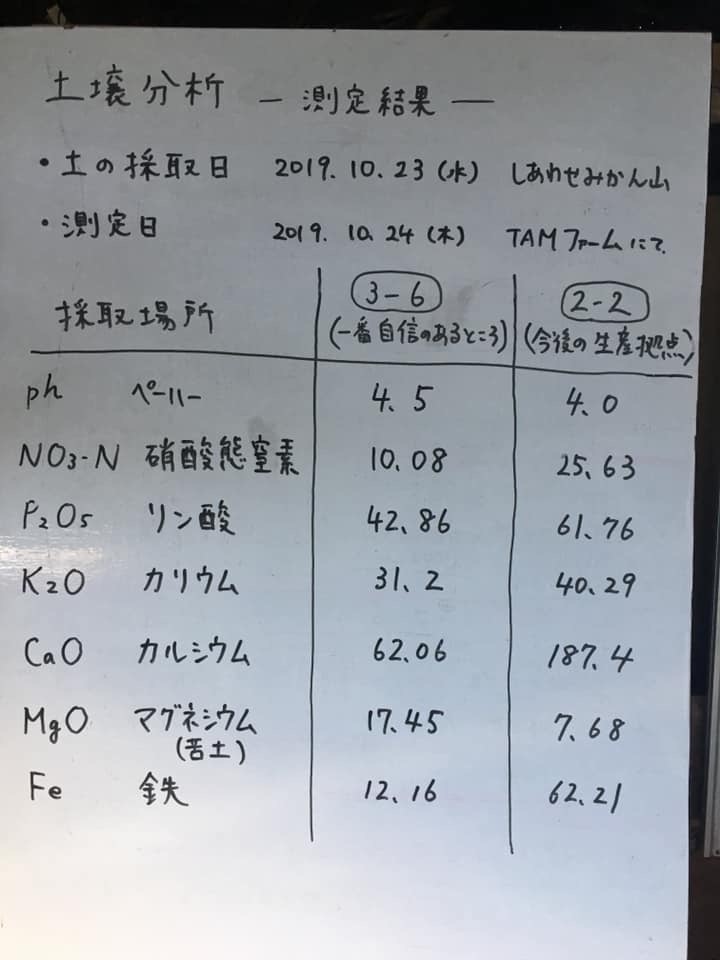 土壌分析 ー 測定結果 ー
・土の採取日 2019.10.23(水) しあわせみかん山
・測定日 2019.10.24(木) TAMファームにて.
採取場所 3-6 2-2
(一番自信のあるところ) (今後の生産拠点)
ph ペーハー 4.5 4.0
NO3-N 硝酸態窒素 10.08 25.63
P2O5 リン酸 42.86 61.76
K2O カリウム 31.2 40.29
CaO カルシウム 62.06 187.4
MgO マグネシウム 17.45 7.68
(苦土)
Fe 鉄 12.16 62.21